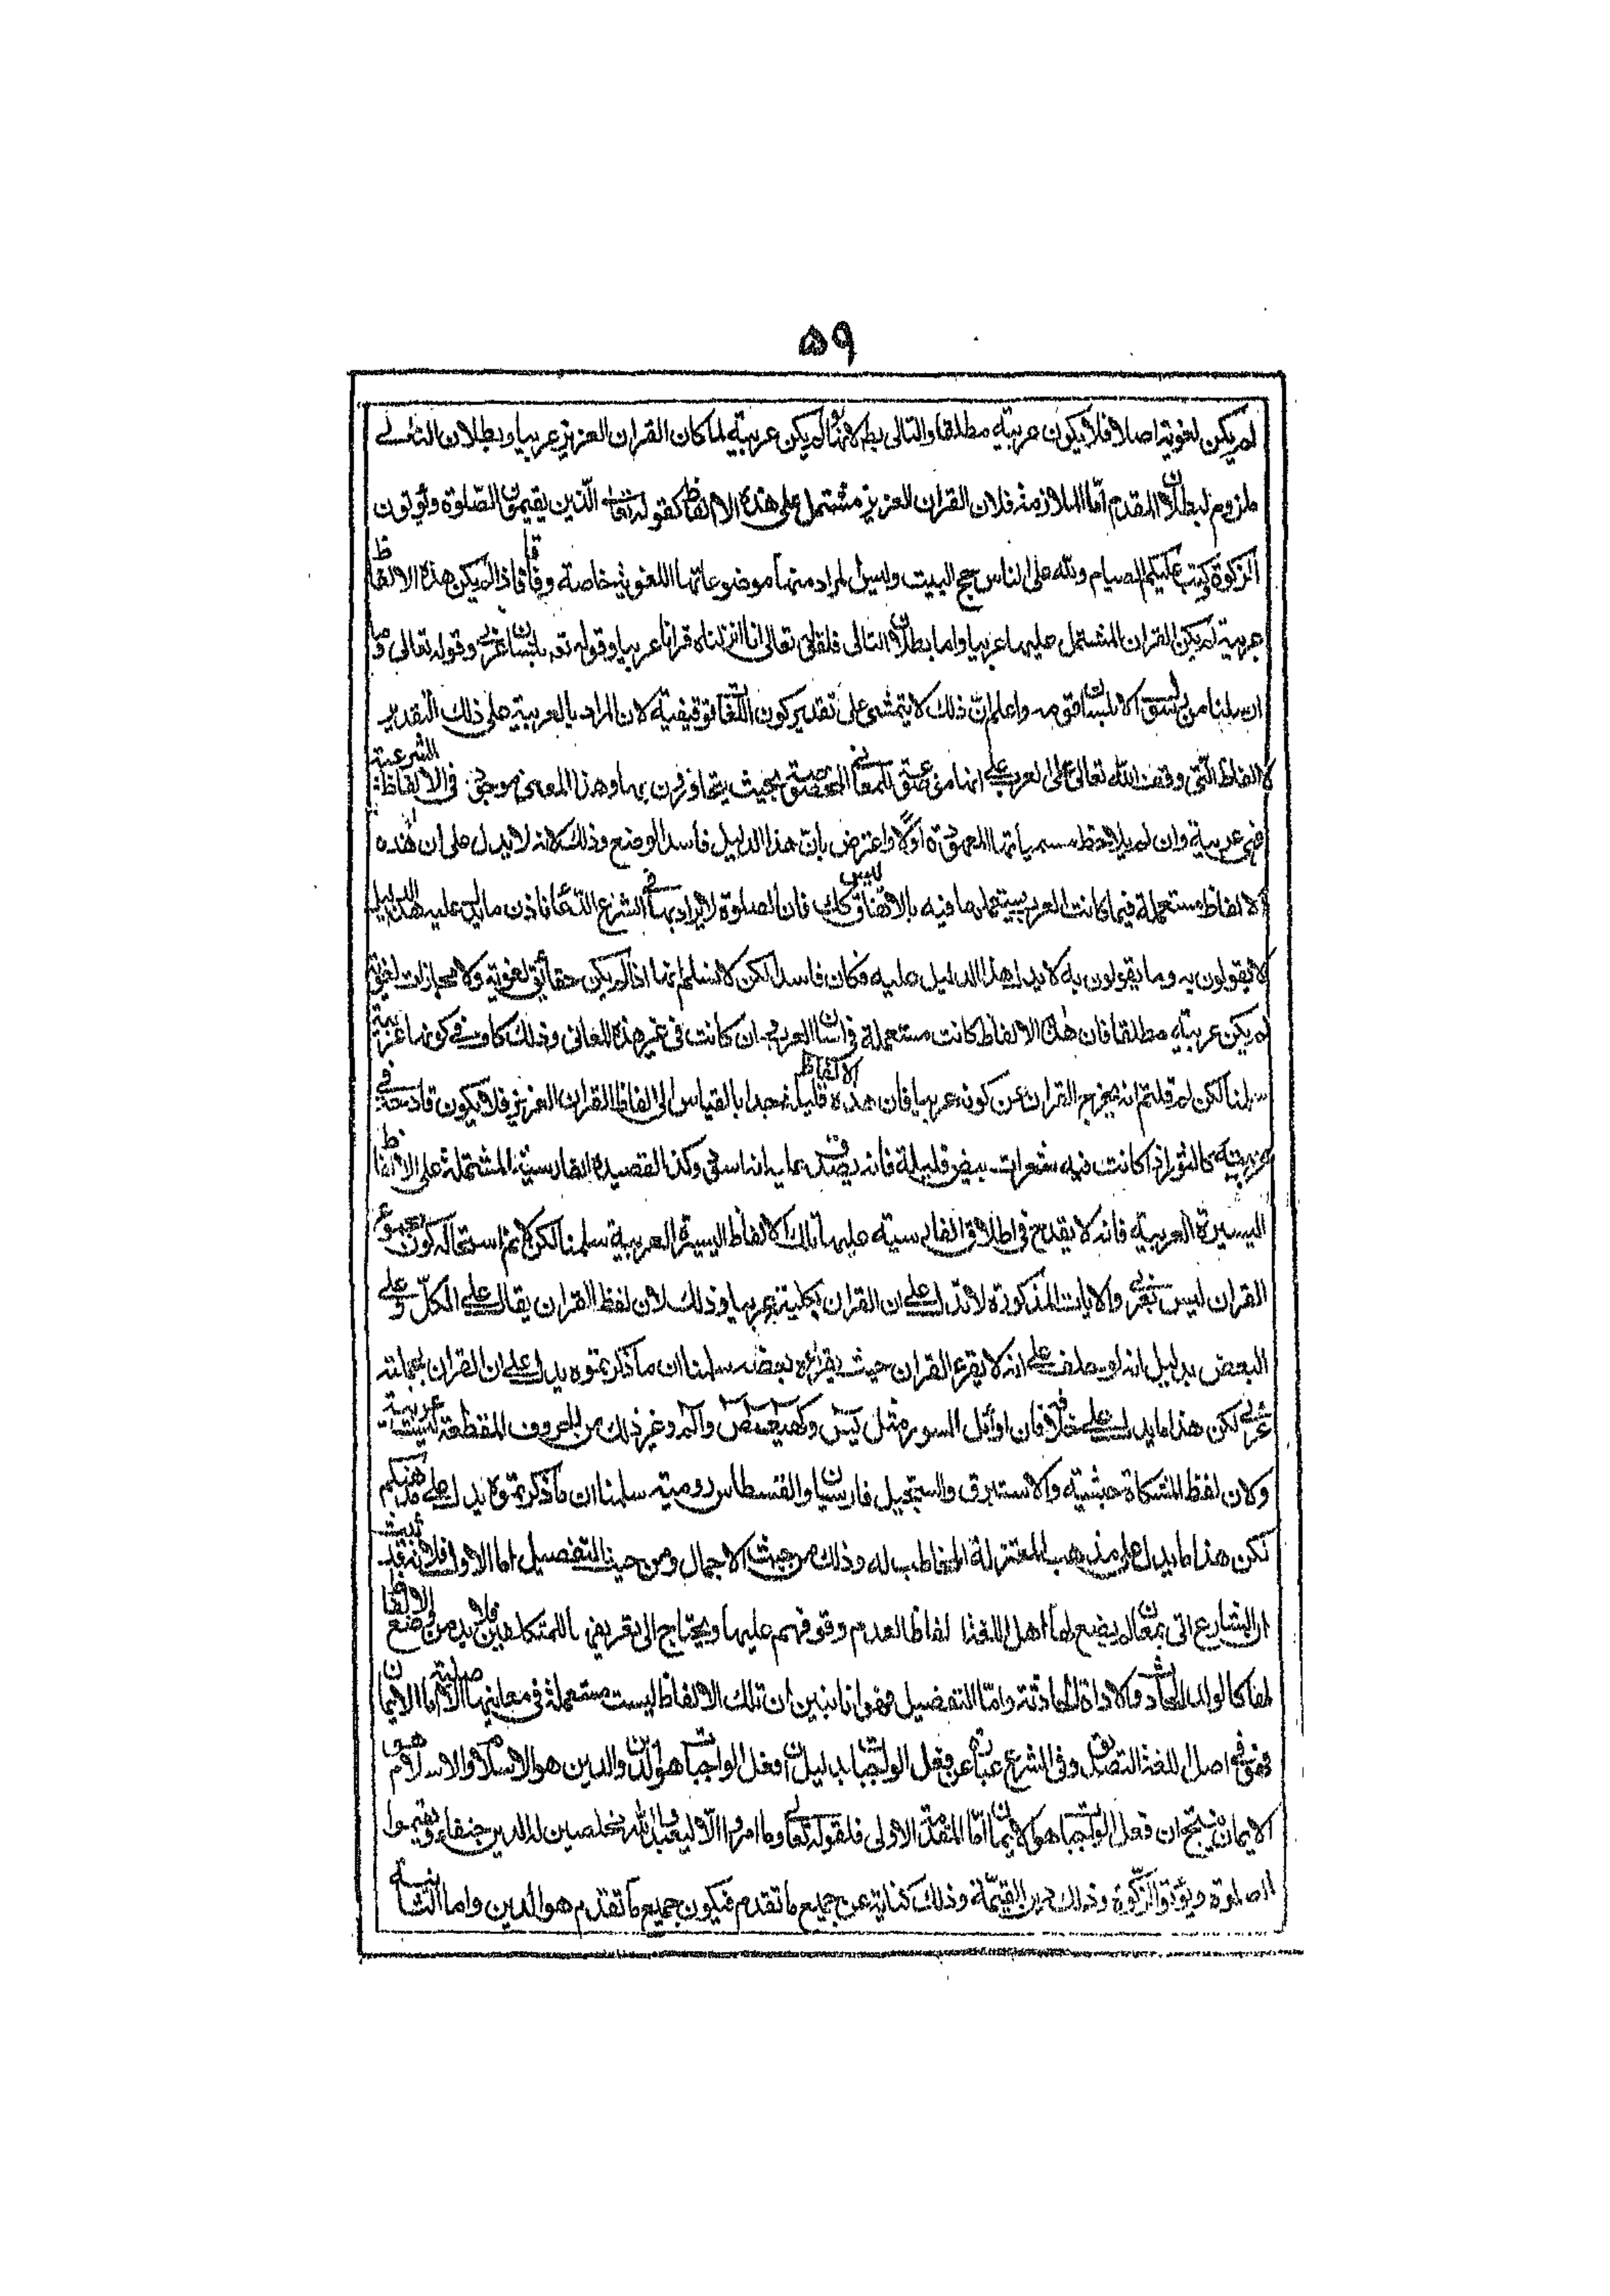 ٥٩
لم يكن لغوية اصلا فلا يكون عربية مطلقا والتالى بط لانها لو لم يكن عربية لما كان القران العزيز عربيا وبطلان التالى
ملزوم لبطلان المقدم اما الملازمة فلان القران العزيز مشتمل على هذه الالفاظ كقوله تعالى الذين يقيمون الصلوة ويؤتون
الزكوة كتب عليكم الصيام ولله على الناس حج البيت وليس المراد منها موضوعاتها اللغوية خاصة وفاقا فاذا لم يكن هذه الالفاظ
عربية لم يكن القران المشتمل عليها عربيا واما بطلان التالى فلقوله تعالى انا انزلناه قرانا عربيا وقوله تعـ بلسان عربى وقوله تعالى وما
ارسلنا من رسول الا بلسان قومه واعلم ان ذلك لا يتمشى على تقدير كون اللغات توقيفية لان المراد بالعربية على ذلك التقدير
الالفاظ التى وقف الله تعالى العرب على انها موضوعة للمعانى المخصوصة بحيث يتحاورون بها وهذا المعنى موجود فى الالفاظ الشرعية
فهى عربية وان لم يلاحظ مسمياتها المعهودة اولا واعترض بان هذا الدليل فاسد الوضع وذلك لانه لا يدل على ان هذه
الالفاظ مستعملة فيما كانت العرب يستعملها فيه بالاتفاق ليس كك فان الصلوة لا يراد بها فى الشرع الدعا فاذن ما يدل عليه هذا الدليل
لا يقولون به وما يقولون به لا يدل هذا الدليل عليه فكان فاسدا لكن لا نسلم انها اذا لم يكن حقايق لغوية ولا مجازات لغوية
لم يكن عربية مطلقا فان هذه الالفاظ كانت مستعملة فى لسان العرب وان كانت فى غير هذه المعانى وذلك كاف فى كونها عربية
سلمنا لكن لم قلتم انه يخرج القران عن كونه عربيا فان هذه الالفاظ قليلة جدا بالقياس الى الفاظ القران العزيز فلا يكون قادحة فى
عربيته كالثور اذا كانت فيه شعرات بيض قليلة فانه يصدق عليه انه اسود وكذا القصيدة الفارسية المشتملة على الالفاظ
اليسيرة العربية فانه لا يقدح فى اطلاق الفارسية عليها تلك الالفاظ اليسيرة العربية سلمنا لكن لا نم استحالة كون مجموع
القران ليس بعربى والايات المذكورة لا تدل على ان القران بكليته عربيا وذلك لان لفظ القران يقال على الكل وعلى
البعض بدليل انه لو حلف على انه لا يقرء القران حيث بقراءة بعضه سلمنا ان ما ذكرتموه يدل على ان القران بجملته
عربى لكن هذا ما يدل على خلافه فان اوائل السور مثل يس وكهيعص والم وغير ذلك من الحروف المقطعة ليست عربية
ولان لفظ المشكاة حبشية والاستبرق والسجيل فارسيان والقسطاس رومية سلمنا ان ما ذكرتموه يدل على مذهبكم
لكن هذا ما يدل على مذهب المعتزلة المخاطب له وذلك من حيث الاجمال ومن حيث التفصيل اما الاول فلانه قد ثبت
ان الشارع اتى بمعان لم يضع لها اهل اللغة الفاظا لعدم وقوفهم عليها ويحتاج الى تعريفها للمكلفين فلا بد من وضع الالفاظ
لها كالولد الحادث والاداة الحادثة واما التفصيل فهو انا نبين ان تلك الالفاظ ليست مستعملة فى معانيها الاصلية اما الايمان
فهو فى اصل اللغة التصديق وفى الشرع عبارة عن فعل الواجبات بدليل ان فعل الواجبات هو الدين والدين هو الاسلام والاسلام هو
الايمان ينتج ان فعل الواجبات هو الايمان اما المقدمة الاولى فلقوله تعالى وما امروا الا ليعبدوا الله مخلصين له الدين حنفاء ويقيموا
الصلوة ويؤتوا الزكوة وذلك دين القيمة وذلك كناية عن جميع ما تقدم فيكون جميع ما تقدم هو الدين واما الثانية